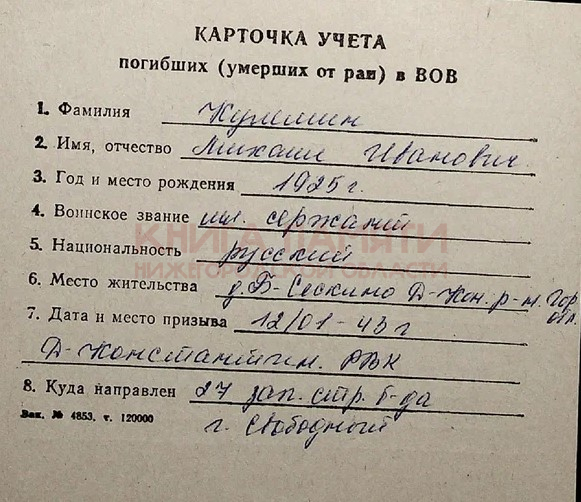 КАРТОЧКА УЧЕТА
погибших (умерших от ран) в ВОВ
1. Фамилия Кулемин
2. Имя, отчество Михаил Иванович
3. Год и место рождения 1925 г.
4. Воинское звание мл. сержант
КНИГА ПАМЯТИ
5. Национальность русский
НИЖЕГОРОДСКОЙ ОБЛАСТИ
6. Место жительства д. Б-Сескино Д-Кон. р-н. Гор. обл.
7. Дата и место призыва 12/01-43 г
Д-Константин. РВК
8. Куда направлен 27 зап. стр. б-да
Зак. № 4853. т. 120000
г. Свободный